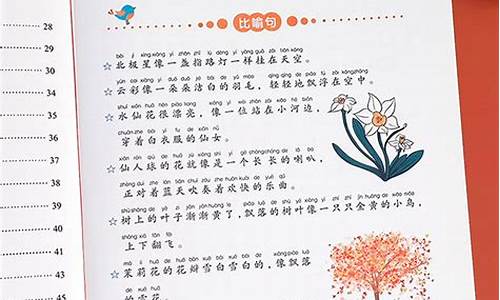 比喻句
běi jí xīng xiàng yì zhǎn zhǐ lù dēng yí yàng guà zài tiān kōng
☆北极星像一盏指路灯一样挂在天空。
yún cai xiàng yì duǒ duǒ jié bái de yǔ máo qīng qīng de piāo fú zài kōng zhōng
☆云彩像一朵朵洁白的羽毛，轻轻地飘浮在空中。
shuǐ xiān huā hěn piào liang xiàng yí wèi zhàn zài xiǎo hé biān
☆水仙花很漂亮，像一位站在小河边，
chuān zhe bái yī fu de xiān nǚ
穿着白衣服的仙女。
xiān rén qiú de huā jiù xiàng shì yí gè cháng cháng de lǎ ba
☆仙人球的花就像是一个长长的喇叭，
zhèng duì zhe lán tiān chuī zòu zhe huān kuài de yuè qǔ
正对着蓝天吹奏着欢快的乐曲。
shù shàng de yè zi jiàn jiàn huáng le piāo luò de shù yè xiàng yì zhī zhī jīn huáng de xiǎo niǎo
☆树上的叶子渐渐黄了，飘落的树叶像一只只金黄的小鸟，
shàng xià fān fēi
上下翻飞。
mò lì huā de huā bàn xuě bái xuě bái de xiàng piāo luò
☆茉莉花的花瓣雪白雪白的，像飘落
的雪花。
28
34
35
36
37
39
40
41
45
43